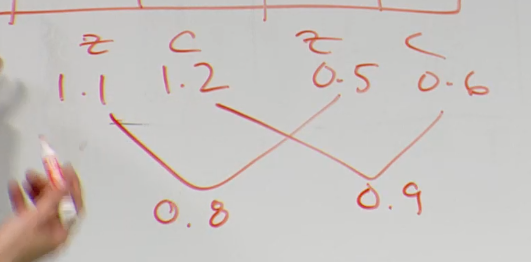 z c z c
1.1 1.2 0.5 0.6
0.8 0.9